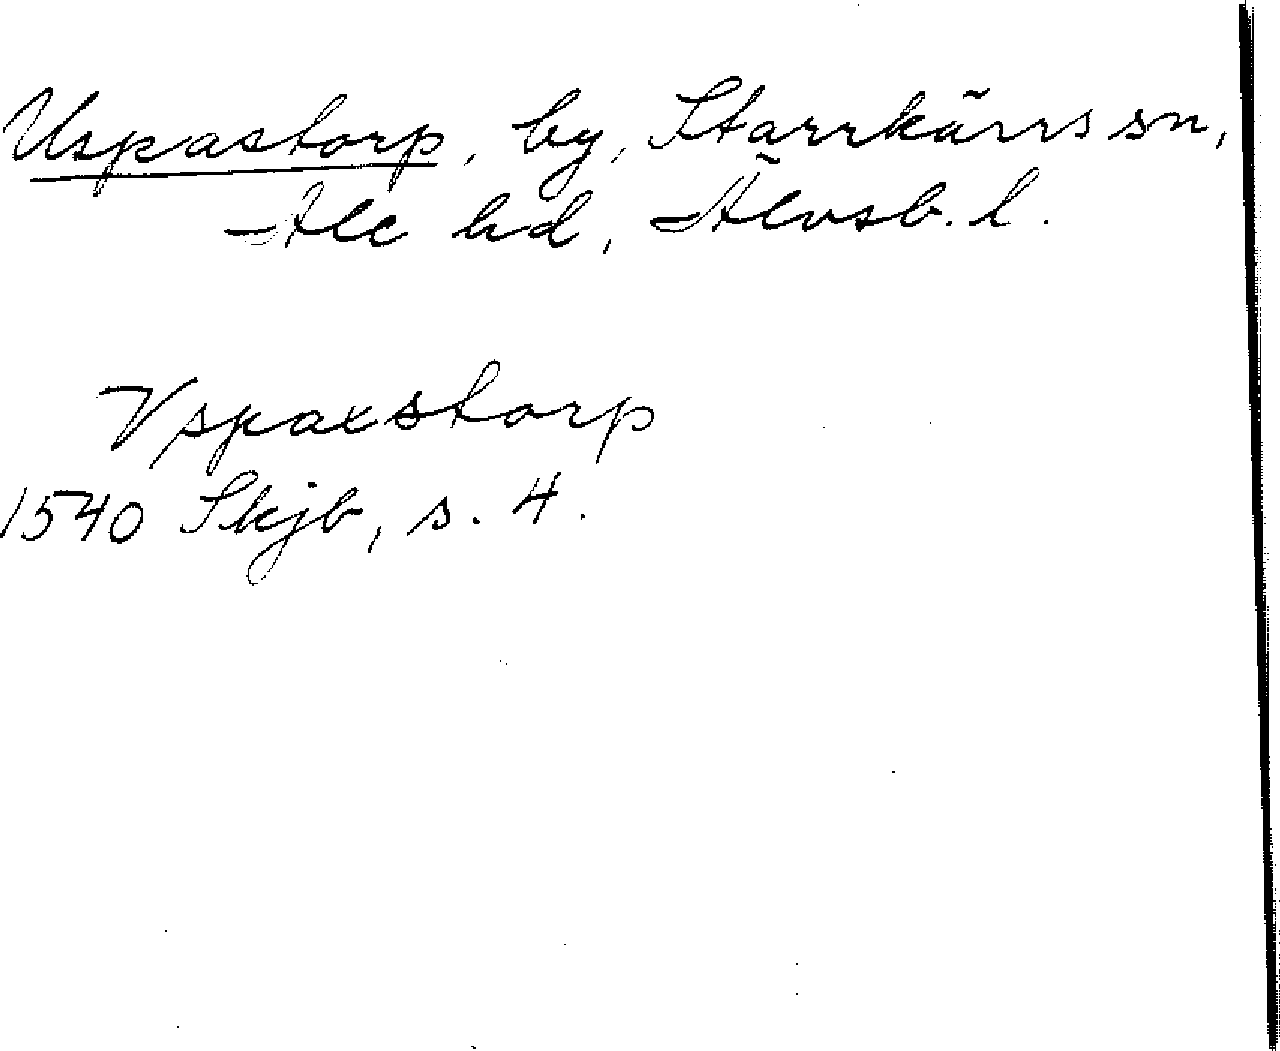 Uspastorp, by, Starrkärrs sn,
Ale hd, Älvsb. l.
Vspaxstorp
1540 Skjb, s. 4.